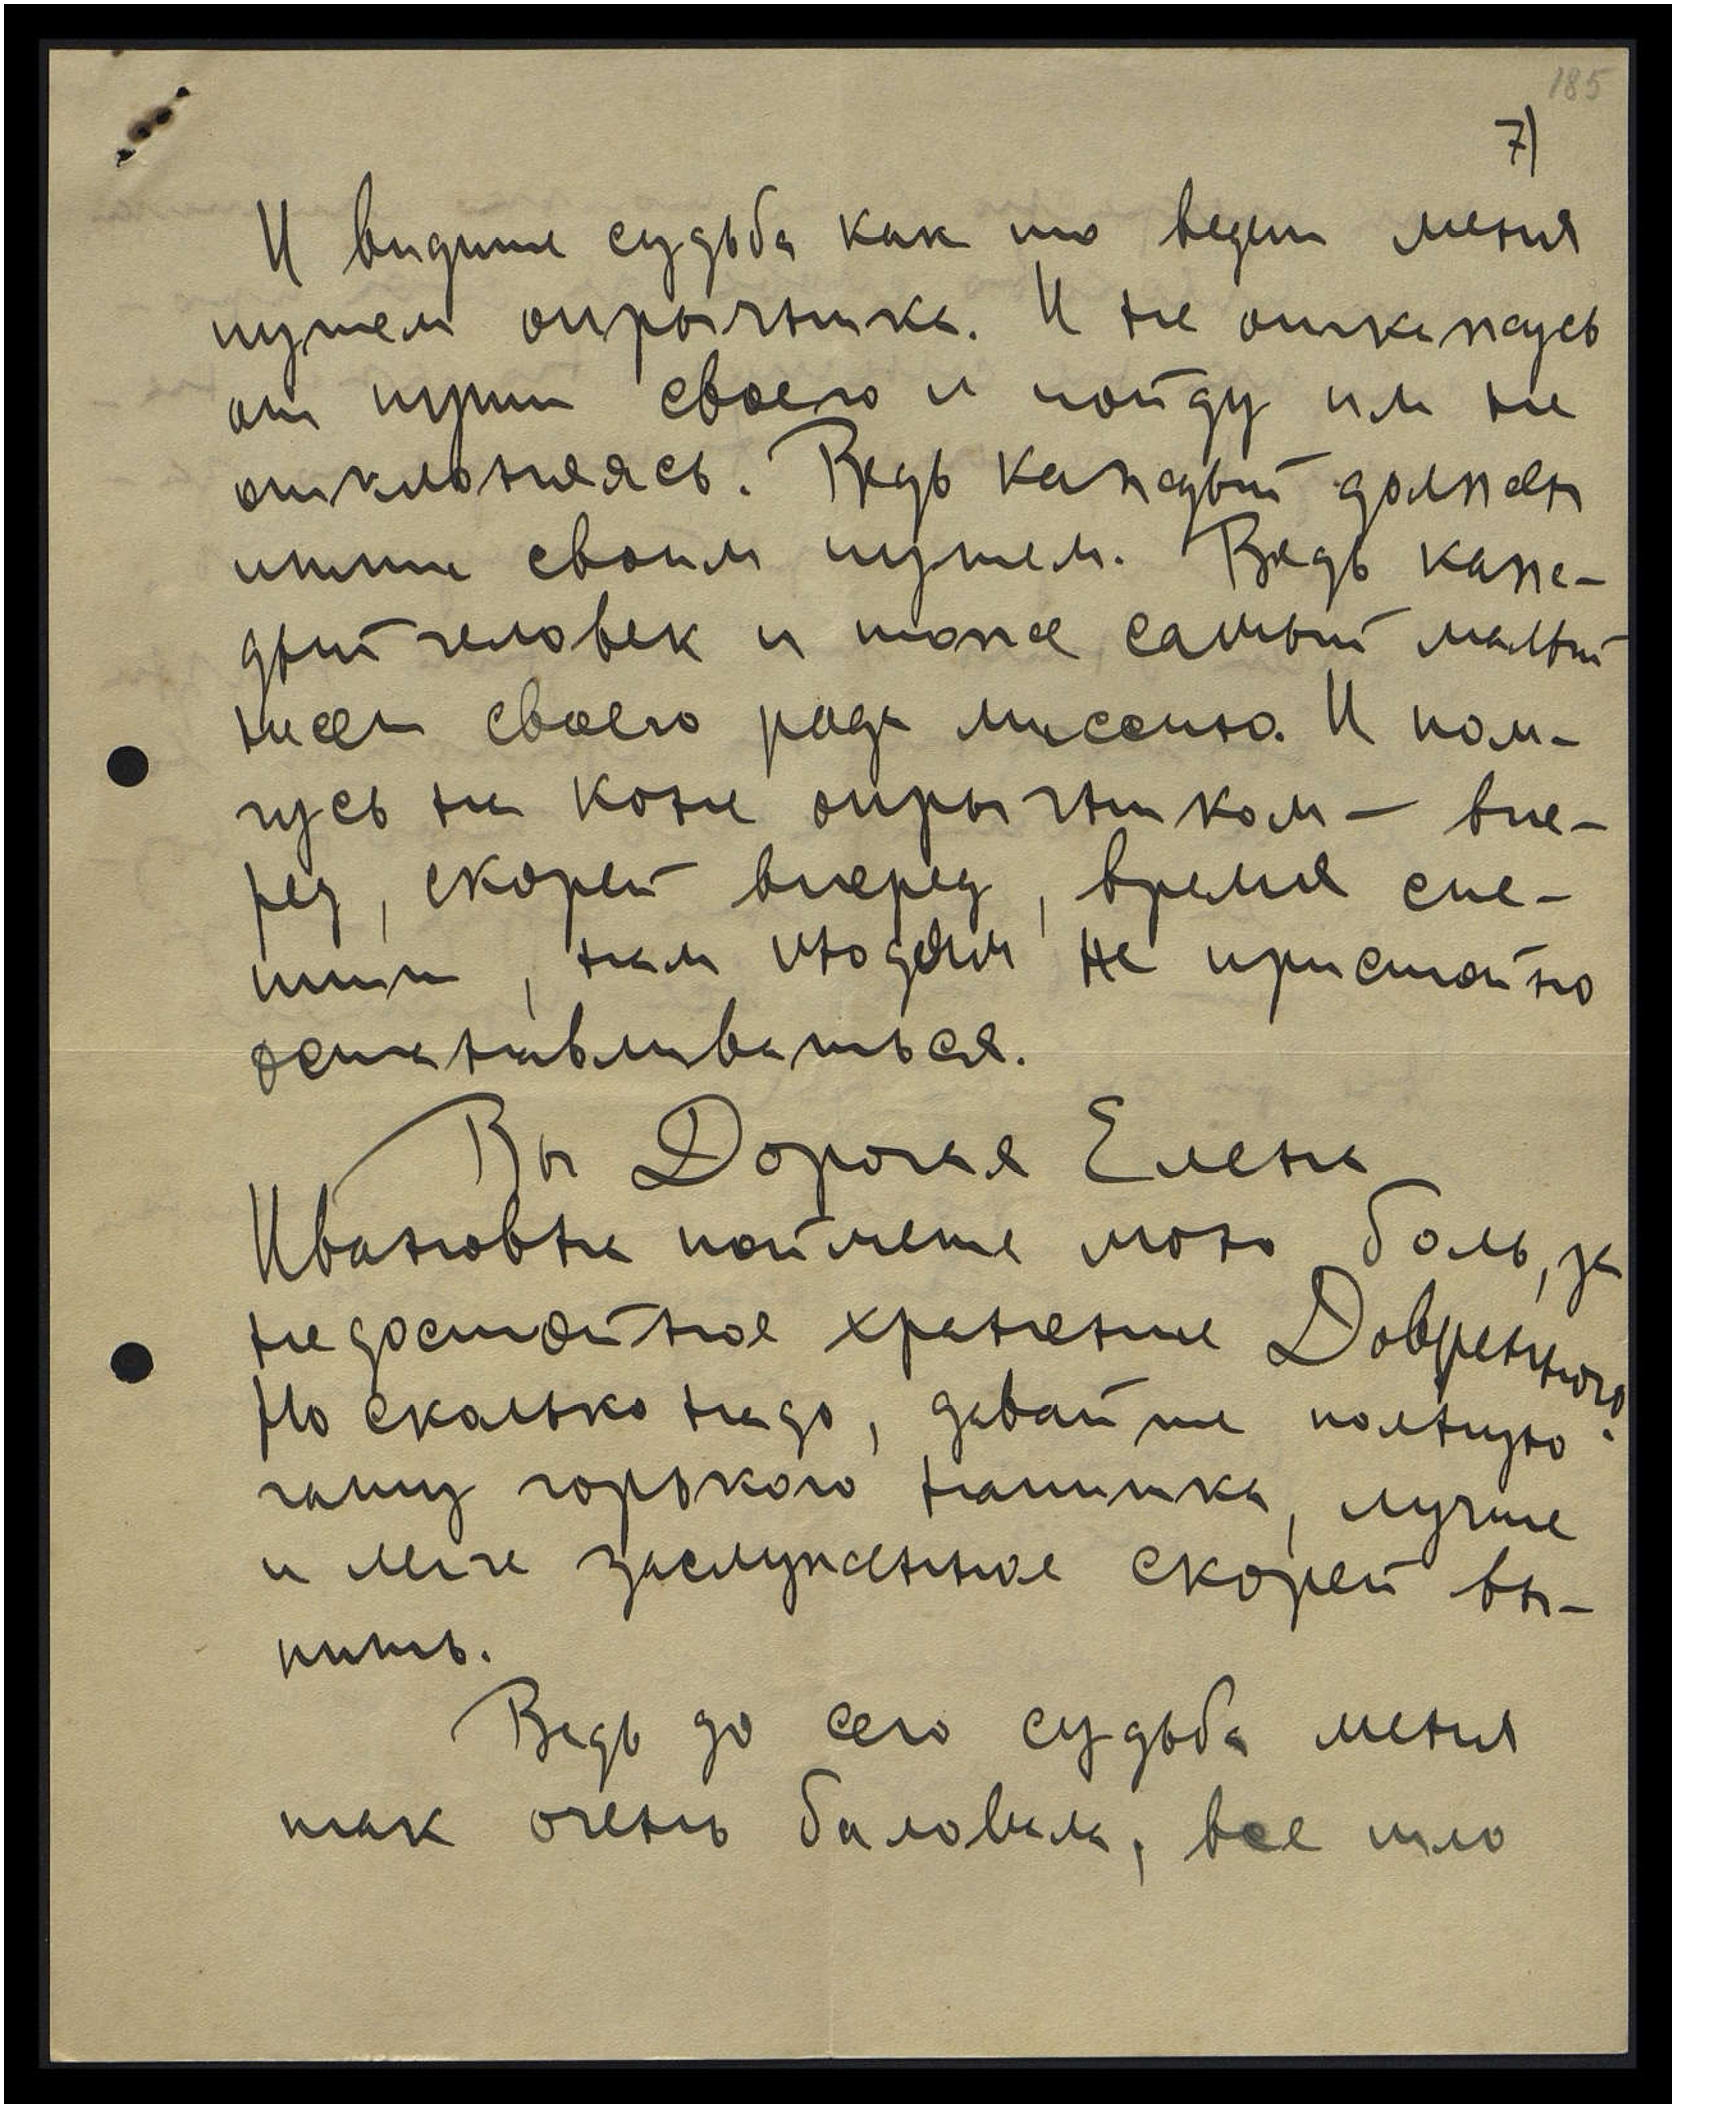 185
7)
И видите судьба как то ведет меня
путем опрычника. И не откажусь
от пути своего и пойду им не
отклоняясь. Ведь каждый должен
итти своим путем. Ведь каж-
дый человек и тоже самый малый
несет своего рода миссию. И пом-
чусь на коне опрычником — впе-
ред, скорей вперед, время спе-
шит, нам людям не пристойно
останавливаться.
Вы Дорогая Елена
Ивановна поймете мою боль, за
недостойное хранение Довренного.
Но сколько надо, давайте полную
чашу горького напитка, лучше
и легче заслуженное скорей вы-
пить.
Ведь до сего судьба меня
так очень баловала, все шло